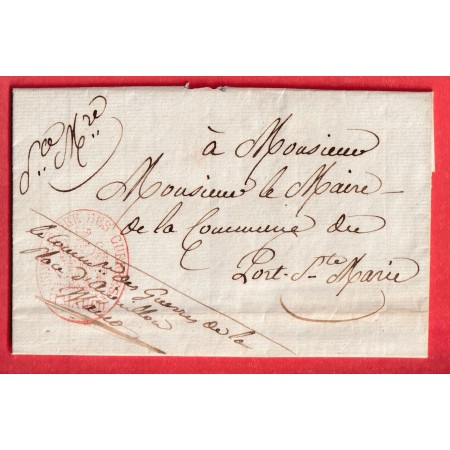 S.ce M.re
à Monsieur
Monsieur le Maire
de la Commune du
Port-S.te Marie
le Commis. des Guerres de la
Place d'
DES GUE